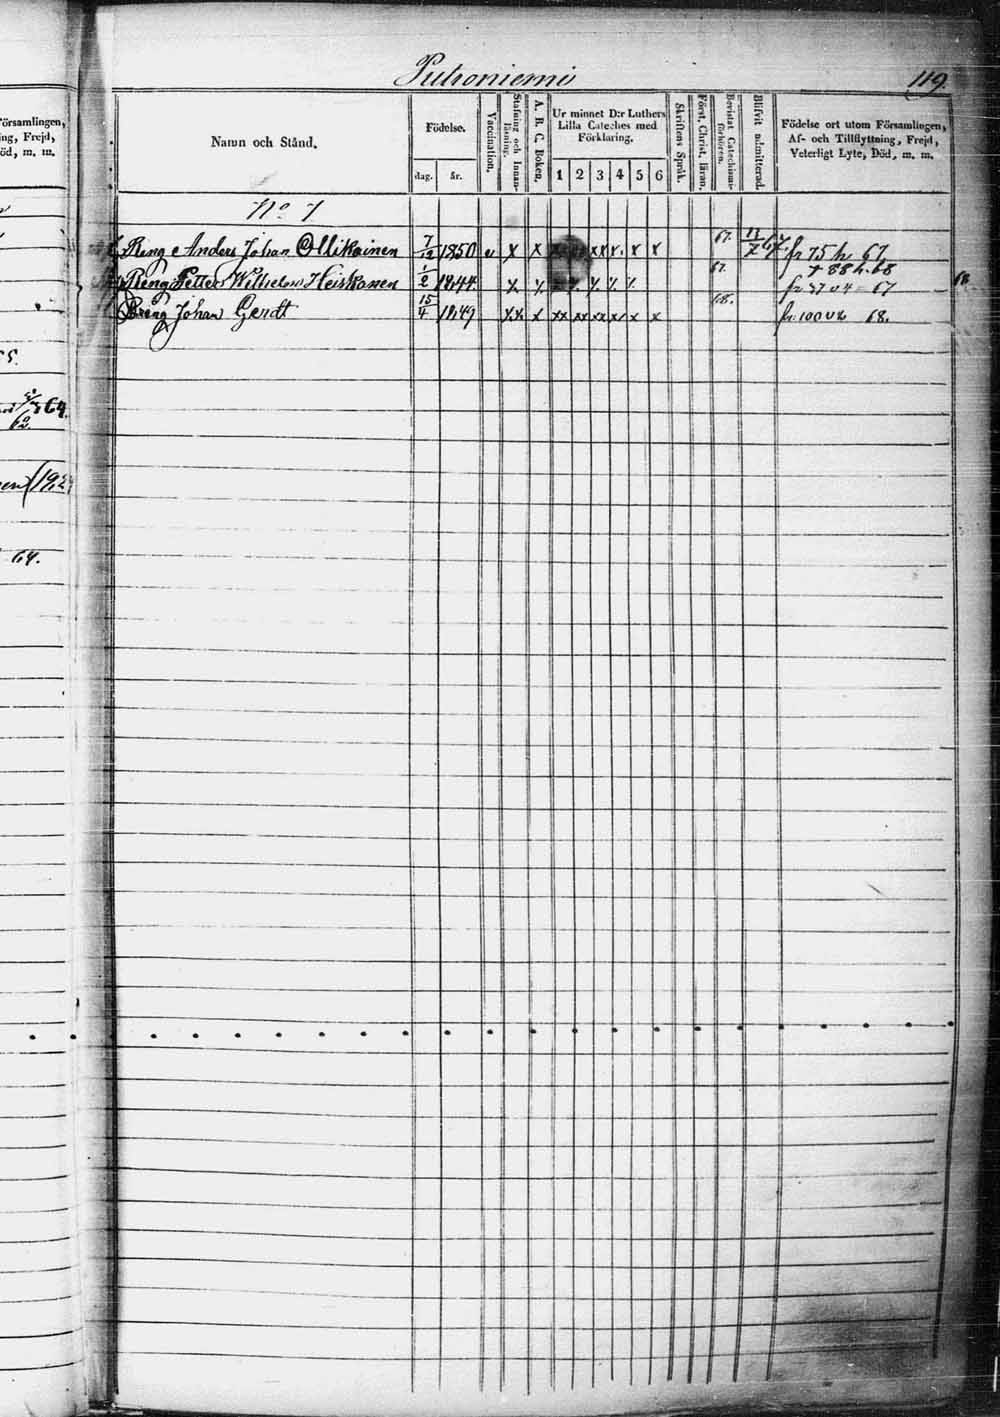 Putroniemi
119.
örsamlingen,
ing, Frejd,
öd, m. m.
Namn och Stånd.
Födelse.
dag.
år.
Vaccination.
Stafning och Innanläsning.
A. B. C. Boken.
Ur minnet D:r Luthers
Lilla Cateches med
Förklaring.
1 2 3 4 5 6
Skriftens Språk.
Först. Christ. läran.
Bevistat Catechismiförhören.
Blifvit admitterad.
Födelse ort utom Församlingen,
Af- och Tillflyttning, Frejd,
Veterligt Lyte, Död, m. m.
No 7
Reng Anders Johan Ollikainen 7/12 1850 v x x xx x x x 67. 67. fr 75 h 67
+ 88 h. 68
Reng Petter Wilhelm Heiskanen 1/2 1844 67. 67
68
Dreng Johan Gerdt 15/4 1849 xx x xx xx xx x x x 68. fr. 100 68.
64.
62.
64.